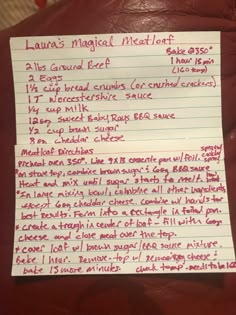 Laura's Magical Meatloaf
Bake @ 350°
1 hour 15 min
(160 temp)
2 lbs Ground Beef
2 Eggs
1½ cup bread crumbs (or crushed crackers)
1 T worcestershire sauce
¼ cup milk
12 oz Sweet Baby Rays BBQ sauce
½ cup brown sugar
8 oz cheddar cheese
Meatloaf Directions
Preheat oven 350°. Line 9x13 casserole pan w/ foil.
on stove top, combine brown sugar & 6 oz BBQ sauce
Heat and mix until sugar starts to melt.
*In large mixing bowl, combine all other ingredients
except 6 oz cheddar cheese. Combine w/ hands for
best results. Form into a rectangle in foiled pan.
*create a trough in center of loaf - fill with 6 oz
cheese and close meat over the top.
*cover loaf w/ brown sugar/BBQ sauce mixture.
Bake 1 hour. Remove - top w/ remaining cheese &
bake 15 more minutes. check temp - needs to be 160